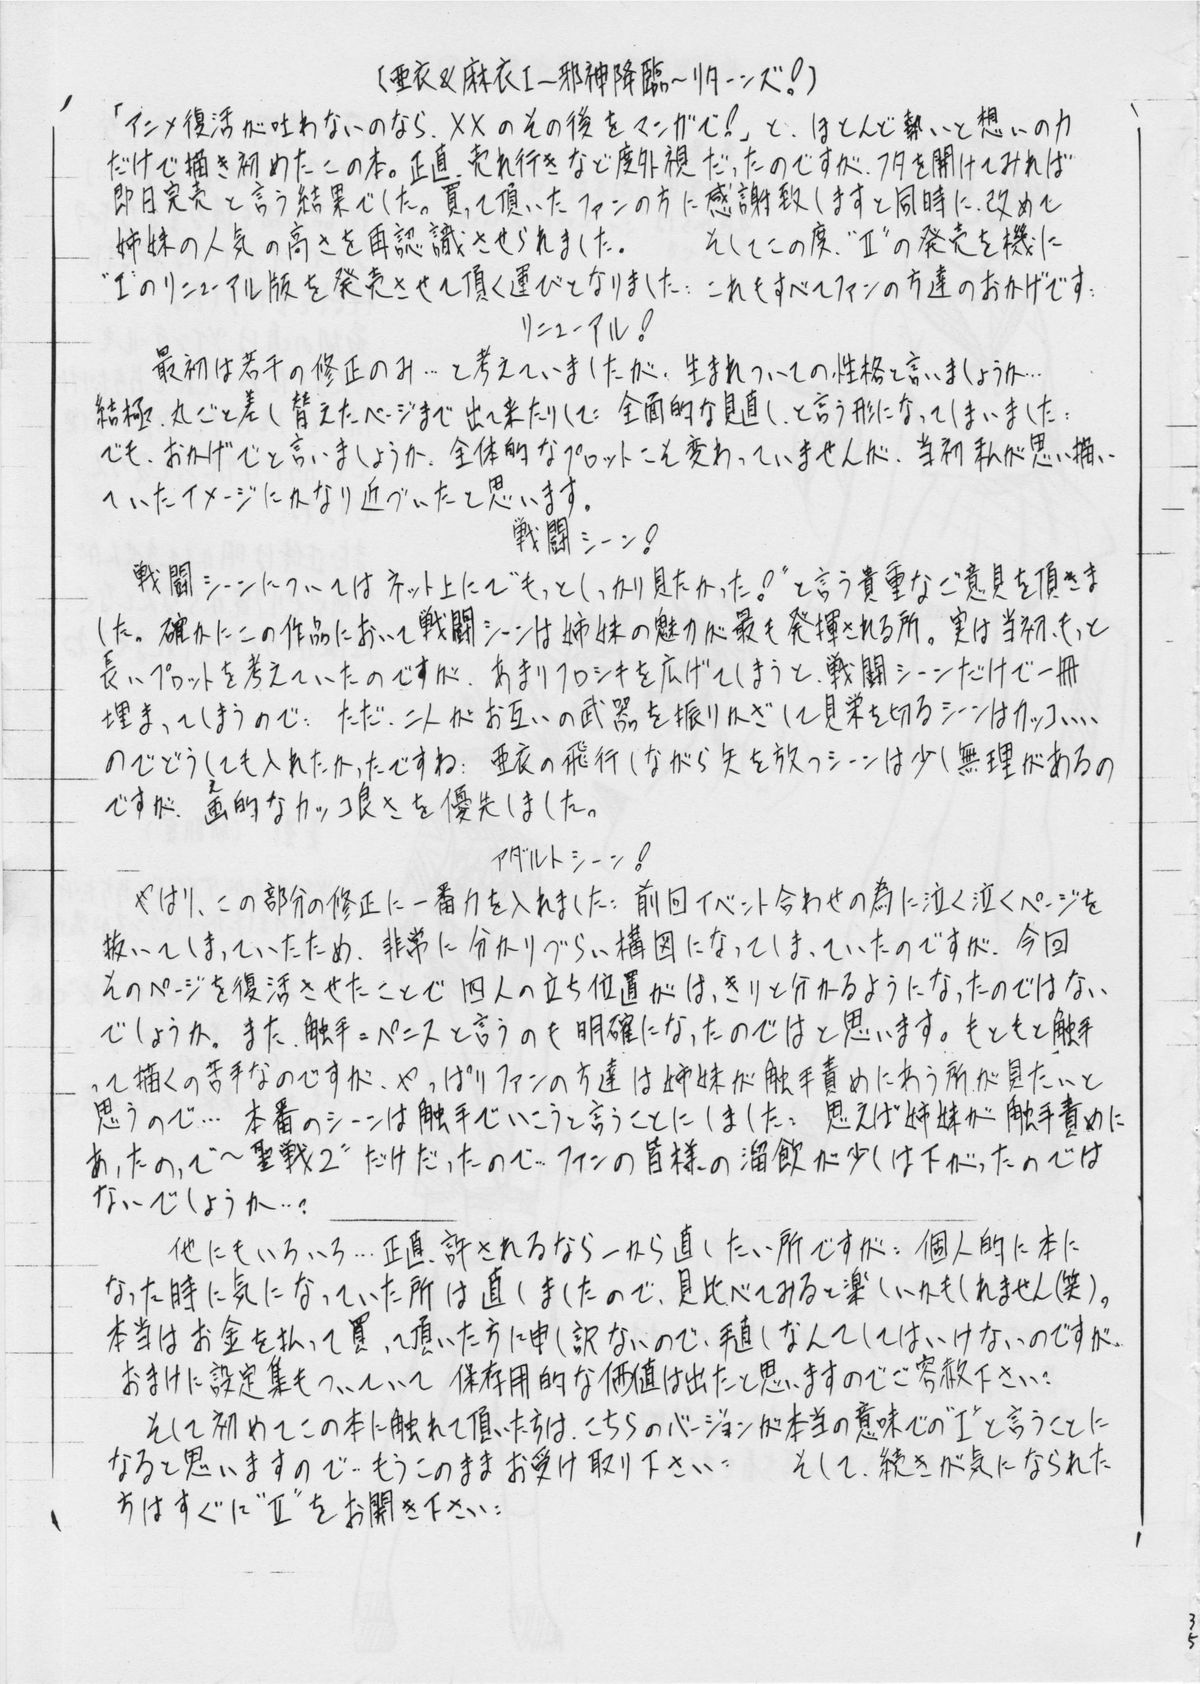 [亜衣&麻衣I～邪神降臨～リターンズ!]
「アニメ復活が叶わないのなら、XXのその後をマンガで!」と、ほとんど勢いと想いの力
だけで描き初めたこの本。正直、売れ行きなど度外視だったのですが、フタを開けてみれば
即日完売と言う結果でした。買って頂いたファンの方に感謝致しますと同時に、改めて
姉妹の人気の高さを再認識させられました。 そしてこの度、"II"の発売を機に
"I"のリニューアル版を発売させて頂く運びとなりました: これもすべてファンの方達のおかげです:
リニューアル!
最初は若干の修正のみ…と考えていましたが、生まれついての性格と言いましょうか…
結極、丸ごと差し替えたページまで出て来たりして: 全面的な見直し、と言う形になってしまいました:
でも、おかげでと言いましょうか、全体的なプロットこそ変わっていませんが、当初私が思い描い
ていたイメージにかなり近づいたと思います。
戦闘シーン!
戦闘シーンについてはネット上にて"もっとしっかり見たかった!"と言う貴重なご意見を頂きま
した。確かにこの作品において戦闘シーンは姉妹の魅力が最も発揮される所。実は当初、もっと
長いプロットを考えていたのですが、あまりフロシキを広げてしまうと、戦闘シーンだけで一冊
埋まってしまうので: ただ、二人がお互いの武器を振りかざして見栄を切るシーンはカッコいい
のでどうしても入れたかったですね: 亜衣の飛行しながら矢を放つシーンは少し無理があるの
ですが、画的なカッコ良さを優先しました。
アダルトシーン!
やはり、この部分の修正に一番力を入れました: 前回イベント合わせの為に泣く泣くページを
抜いてしまっていたため、非常に分かりづらい構図になってしまっていたのですが、今回
そのページを復活させたことで四人の立ち位置がはっきりと分かるようになったのではない
でしょうか。また、触手=ペニスと言うのも明確になったのではと思います。もともと触手
って描くの苦手なのですが、やっぱりファンの方達は姉妹が触手責めにあう所が見たいと
思うので… 本番のシーンは触手でいこうと言うことにしました: 思えば姉妹が触手責めに
あったのって"～聖戦2"だけだったので… ファンの皆様の溜飲が少しは下がったのでは
ないでしょうか…?
他にもいろいろ…正直、許されるなら一から直したい所ですが: 個人的に本に
なった時に気になっていた所は直しましたので、見比べてみると楽しいかもしれません(笑)。
本当はお金を払って買って頂いた方に申し訳ないので、手直しなんてしてはいけないのですが、
おまけに設定集もついていて保存用的な価値は出たと思いますのでご容赦下さい:
そして初めてこの本に触れて頂いた方は、こちらのバージョンが本当の意味での"I"と言うことに
なると思いますので… もうこのままお受け取り下さい: そして、続きが気になられた
方はすぐに"II"をお開き下さい:
35